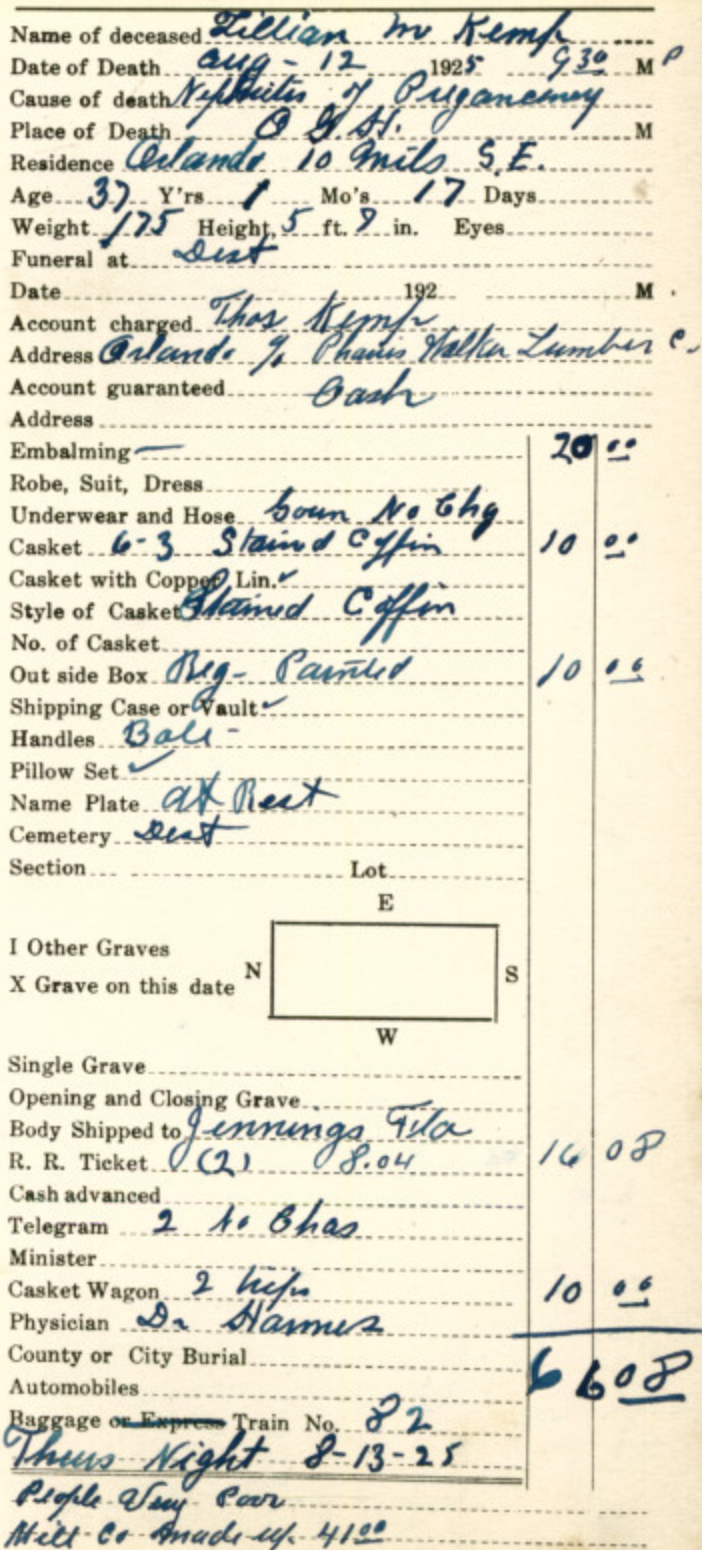 Name of deceased Lillian M Kemp
Date of Death Aug - 12 1925 9 30 M P
Cause of death Nephritis of Pregancency
Place of Death O G H. M
Residence Orlando 10 Mils S.E.
Age 37 Y'rs 1 Mo's 17 Days
Weight 175 Height, 5 ft. 8 in. Eyes
Funeral at Dest
Date 192 M
Account charged Thos Kemp
Address Orlando % Walker Lumber C.
Account guaranteed Cash
Address
Embalming — 20 00
Robe, Suit, Dress
Underwear and Hose Goun No Chg
Casket 6-3 Stained Coffin 10 00
Casket with Copper Lin. ✓
Style of Casket Stained Coffin
No. of Casket
Out side Box Reg - Painted 10 00
Shipping Case or Vault ✓
Handles Bale -
Pillow Set ✓
Name Plate At Rest
Cemetery Dest
Section Lot
E
I Other Graves
X Grave on this date N S
W
Single Grave
Opening and Closing Grave
Body Shipped to Jennings Fla
R. R. Ticket (2) 8.04 16 08
Cash advanced
Telegram 2 No Chas
Minister
Casket Wagon 2 trips 10 00
Physician Dr
County or City Burial 66 08
Automobiles
Baggage or Express Train No. 82
Thurs Night 8-13-25
People Very Poor
Mill Co made up 41 00